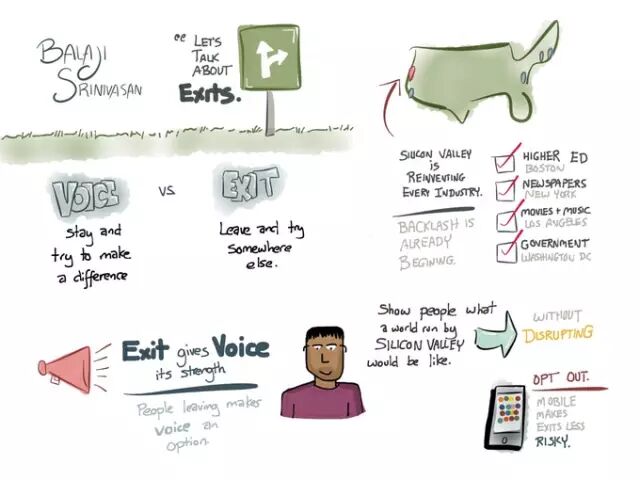 BALAJI
SRINIVASAN
"LET'S
TALK
ABOUT
Exits.
VOICE
VS.
EXIT
Stay and
try to make
a difference
Leave and try
Somewhere
else.
SILICON VALLEY
IS
REINVENTING
EVERY INDUSTRY.
BACKLASH IS
ALREADY
BEGINING.
HIGHER ED
BOSTON
NEWSPAPERS
NEW YORK
MOVIES + MUSIC
LOS ANGELES
GOVERNMENT
WASHINGTON DC
Exit gives Voice
its strength
People leaving makes
voice an
option.
Show people what
a world run by
SILICON VALLEY
would be like.
WITHOUT
DISRUPTING
OPT OUT.
MOBILE
MAKES
EXITS LESS
RISKY.